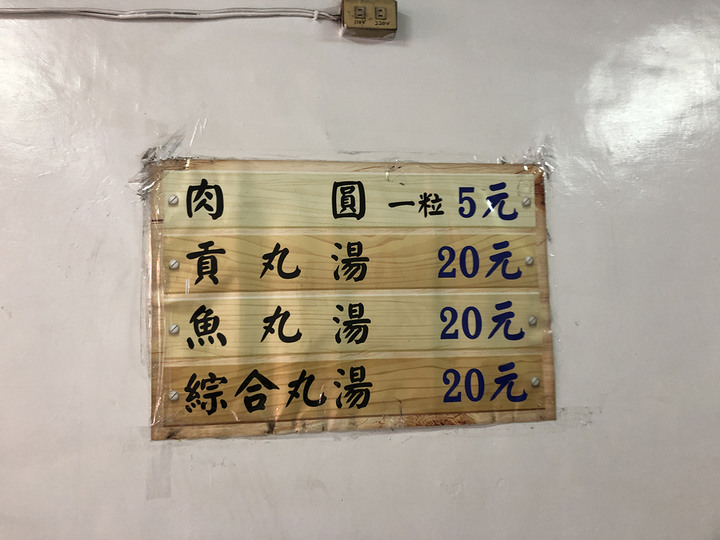 110V 220V
肉圓 一粒 5元
貢丸湯 20元
魚丸湯 20元
綜合丸湯 20元